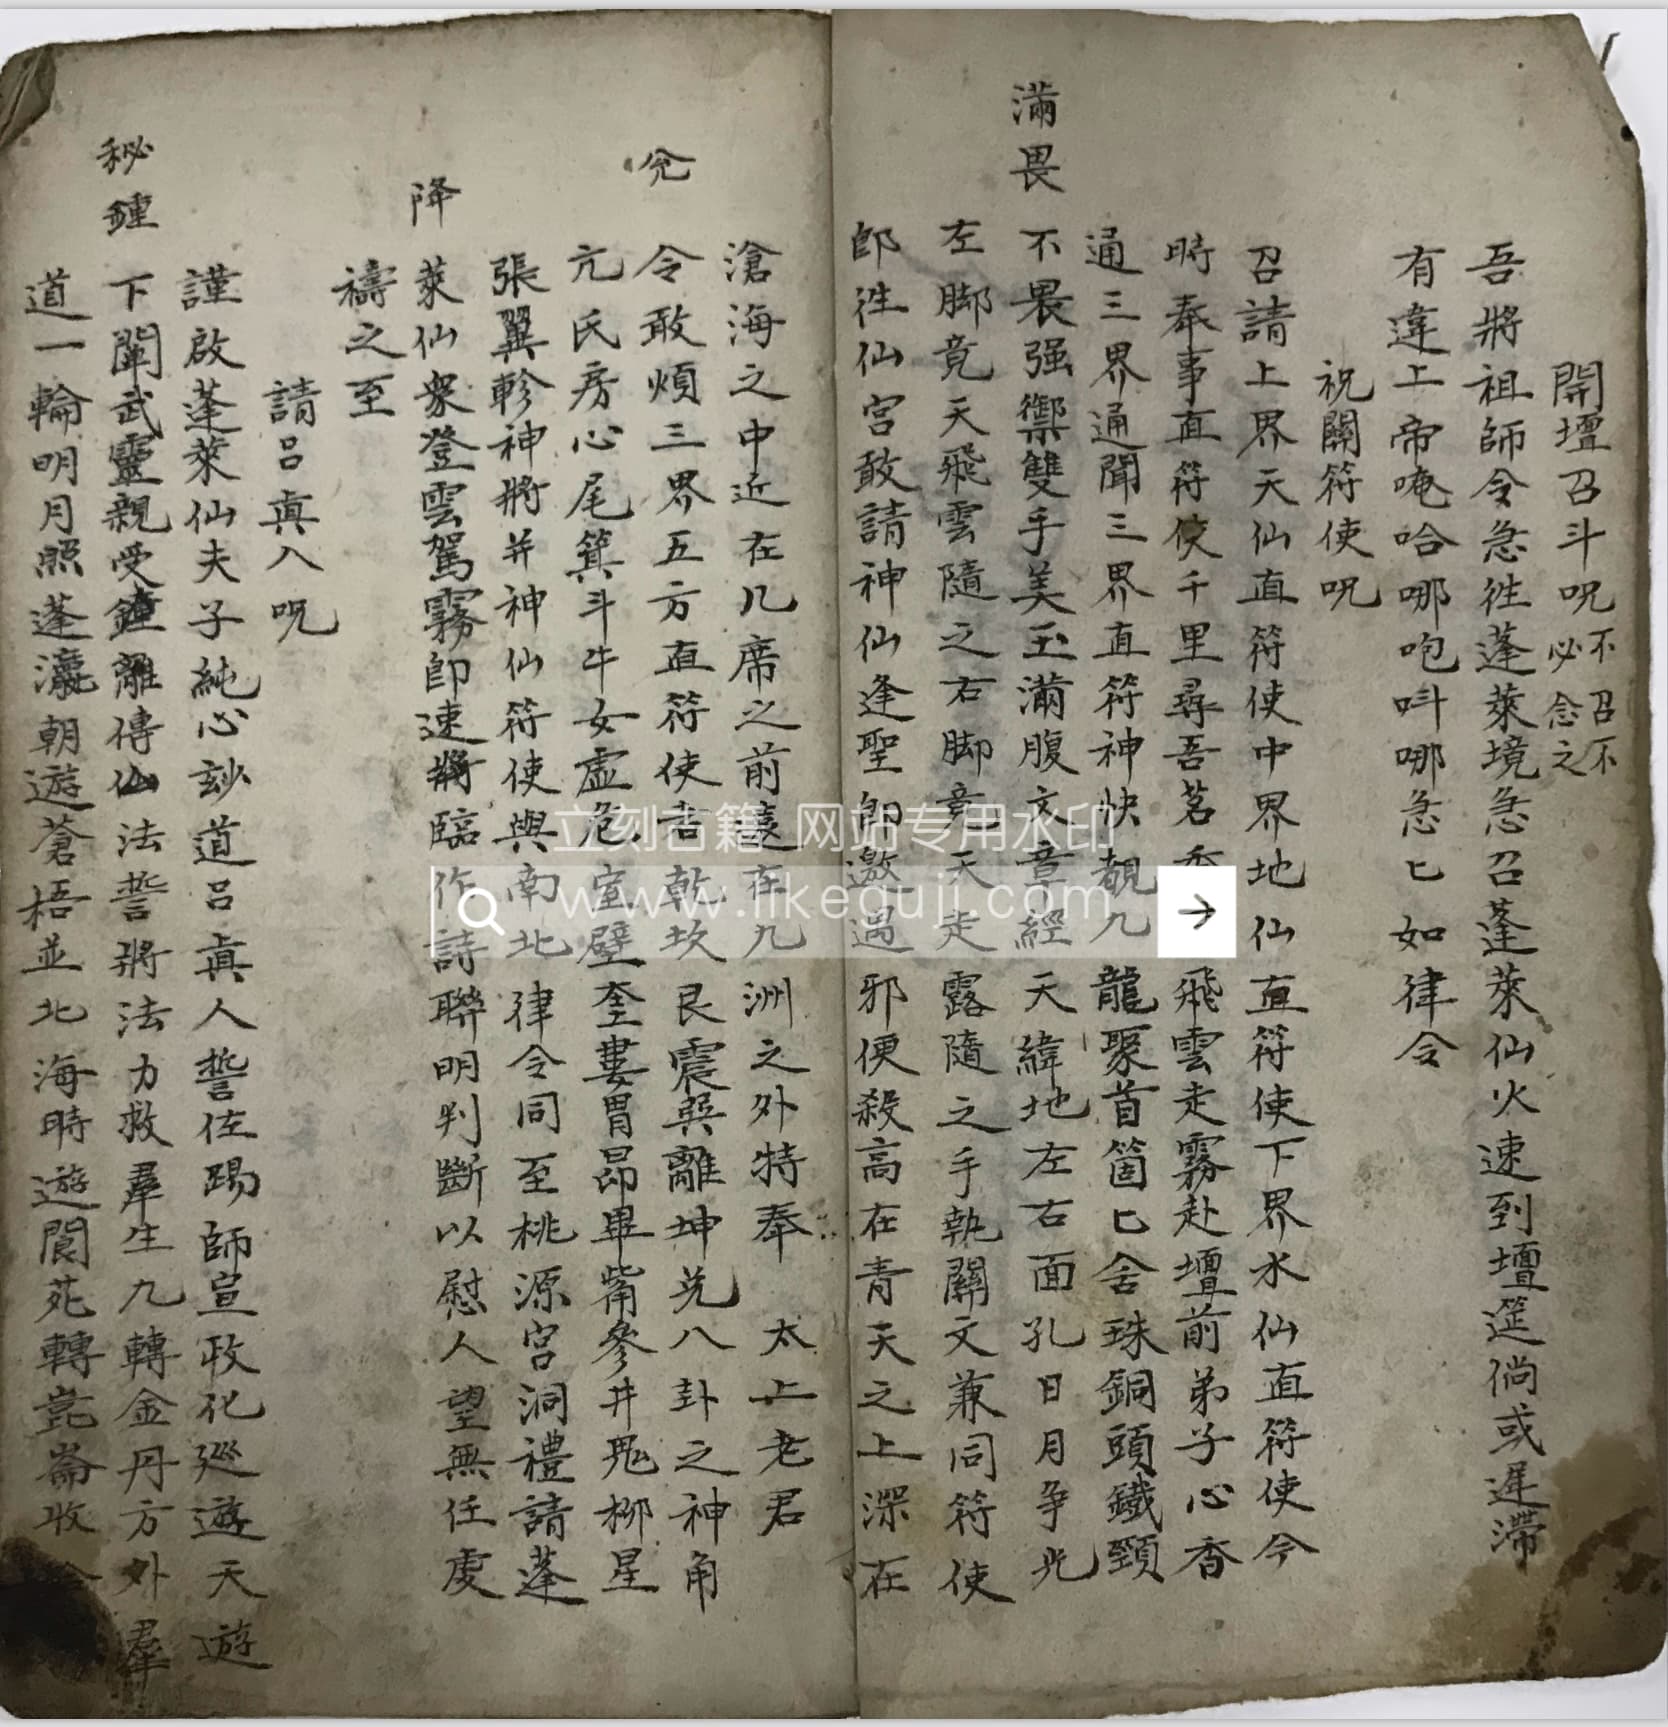 開壇召斗呪 不召不必念之
吾將祖師令急徃蓬萊境急召蓬萊仙火速到壇筵倘或遲滯
有違上帝唵哈哪吔呌哪急匕如律令
祝關符使呪
召請上界天仙直符使中界地仙直符使下界水仙直符使今
時奉事直符使千里尋吾茗香飛雲走霧赴壇前弟子心香
通三界通聞三界直符神快覩九龍聚首箇匕舍珠銅頭鐵頸
滿畏
不畏强禦雙手美玉滿腹文章經天緯地左右面孔日月争光
左脚竟天飛雲隨之右脚竟天走露隨之手執關文兼同符使
卽徃仙宮敢請神仙逢聖卽邀遇邪便殺高在青天之上深在
滄海之中近在几席之前遠在九洲之外特奉 太上老君
兊
令敢煩三界五方直符使者乾坎艮震巽離坤兊八卦之神角
亢氏房心尾箕斗牛女虛危室壁奎婁胃昴畢觜參井鬼柳星
張翼軫神將并神仙符使與南北律令同至桃源宮洞禮請蓬
降
萊仙衆登雲駕霧卽速將臨作詩聯明判斷以慰人望無任虔
禱之至
請呂眞人呪
謹啟蓬萊仙夫子純心玅道呂眞人誓佐踢師宣政化廵遊天遊
秘鍾
下闡武靈親受鐘離傳仙法誓將法力救羣生九轉金丹方外羣
道一輪明月照蓬瀛朝遊蒼梧並北海時遊閬苑轉崑崙收
立刻古籍 网站专用水印
www.likeguji.com